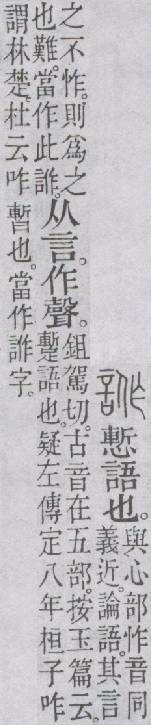 詐慙語也。與心部怍音同
義近。論語。其言
之不怍。則爲之
也難。當作此詐。
从言。作聲。
鉏駕切。古音在五部。按玉篇云。
蹔語也。疑左傳定八年桓子咋
謂林楚。杜云咋暫也。當作詐字。